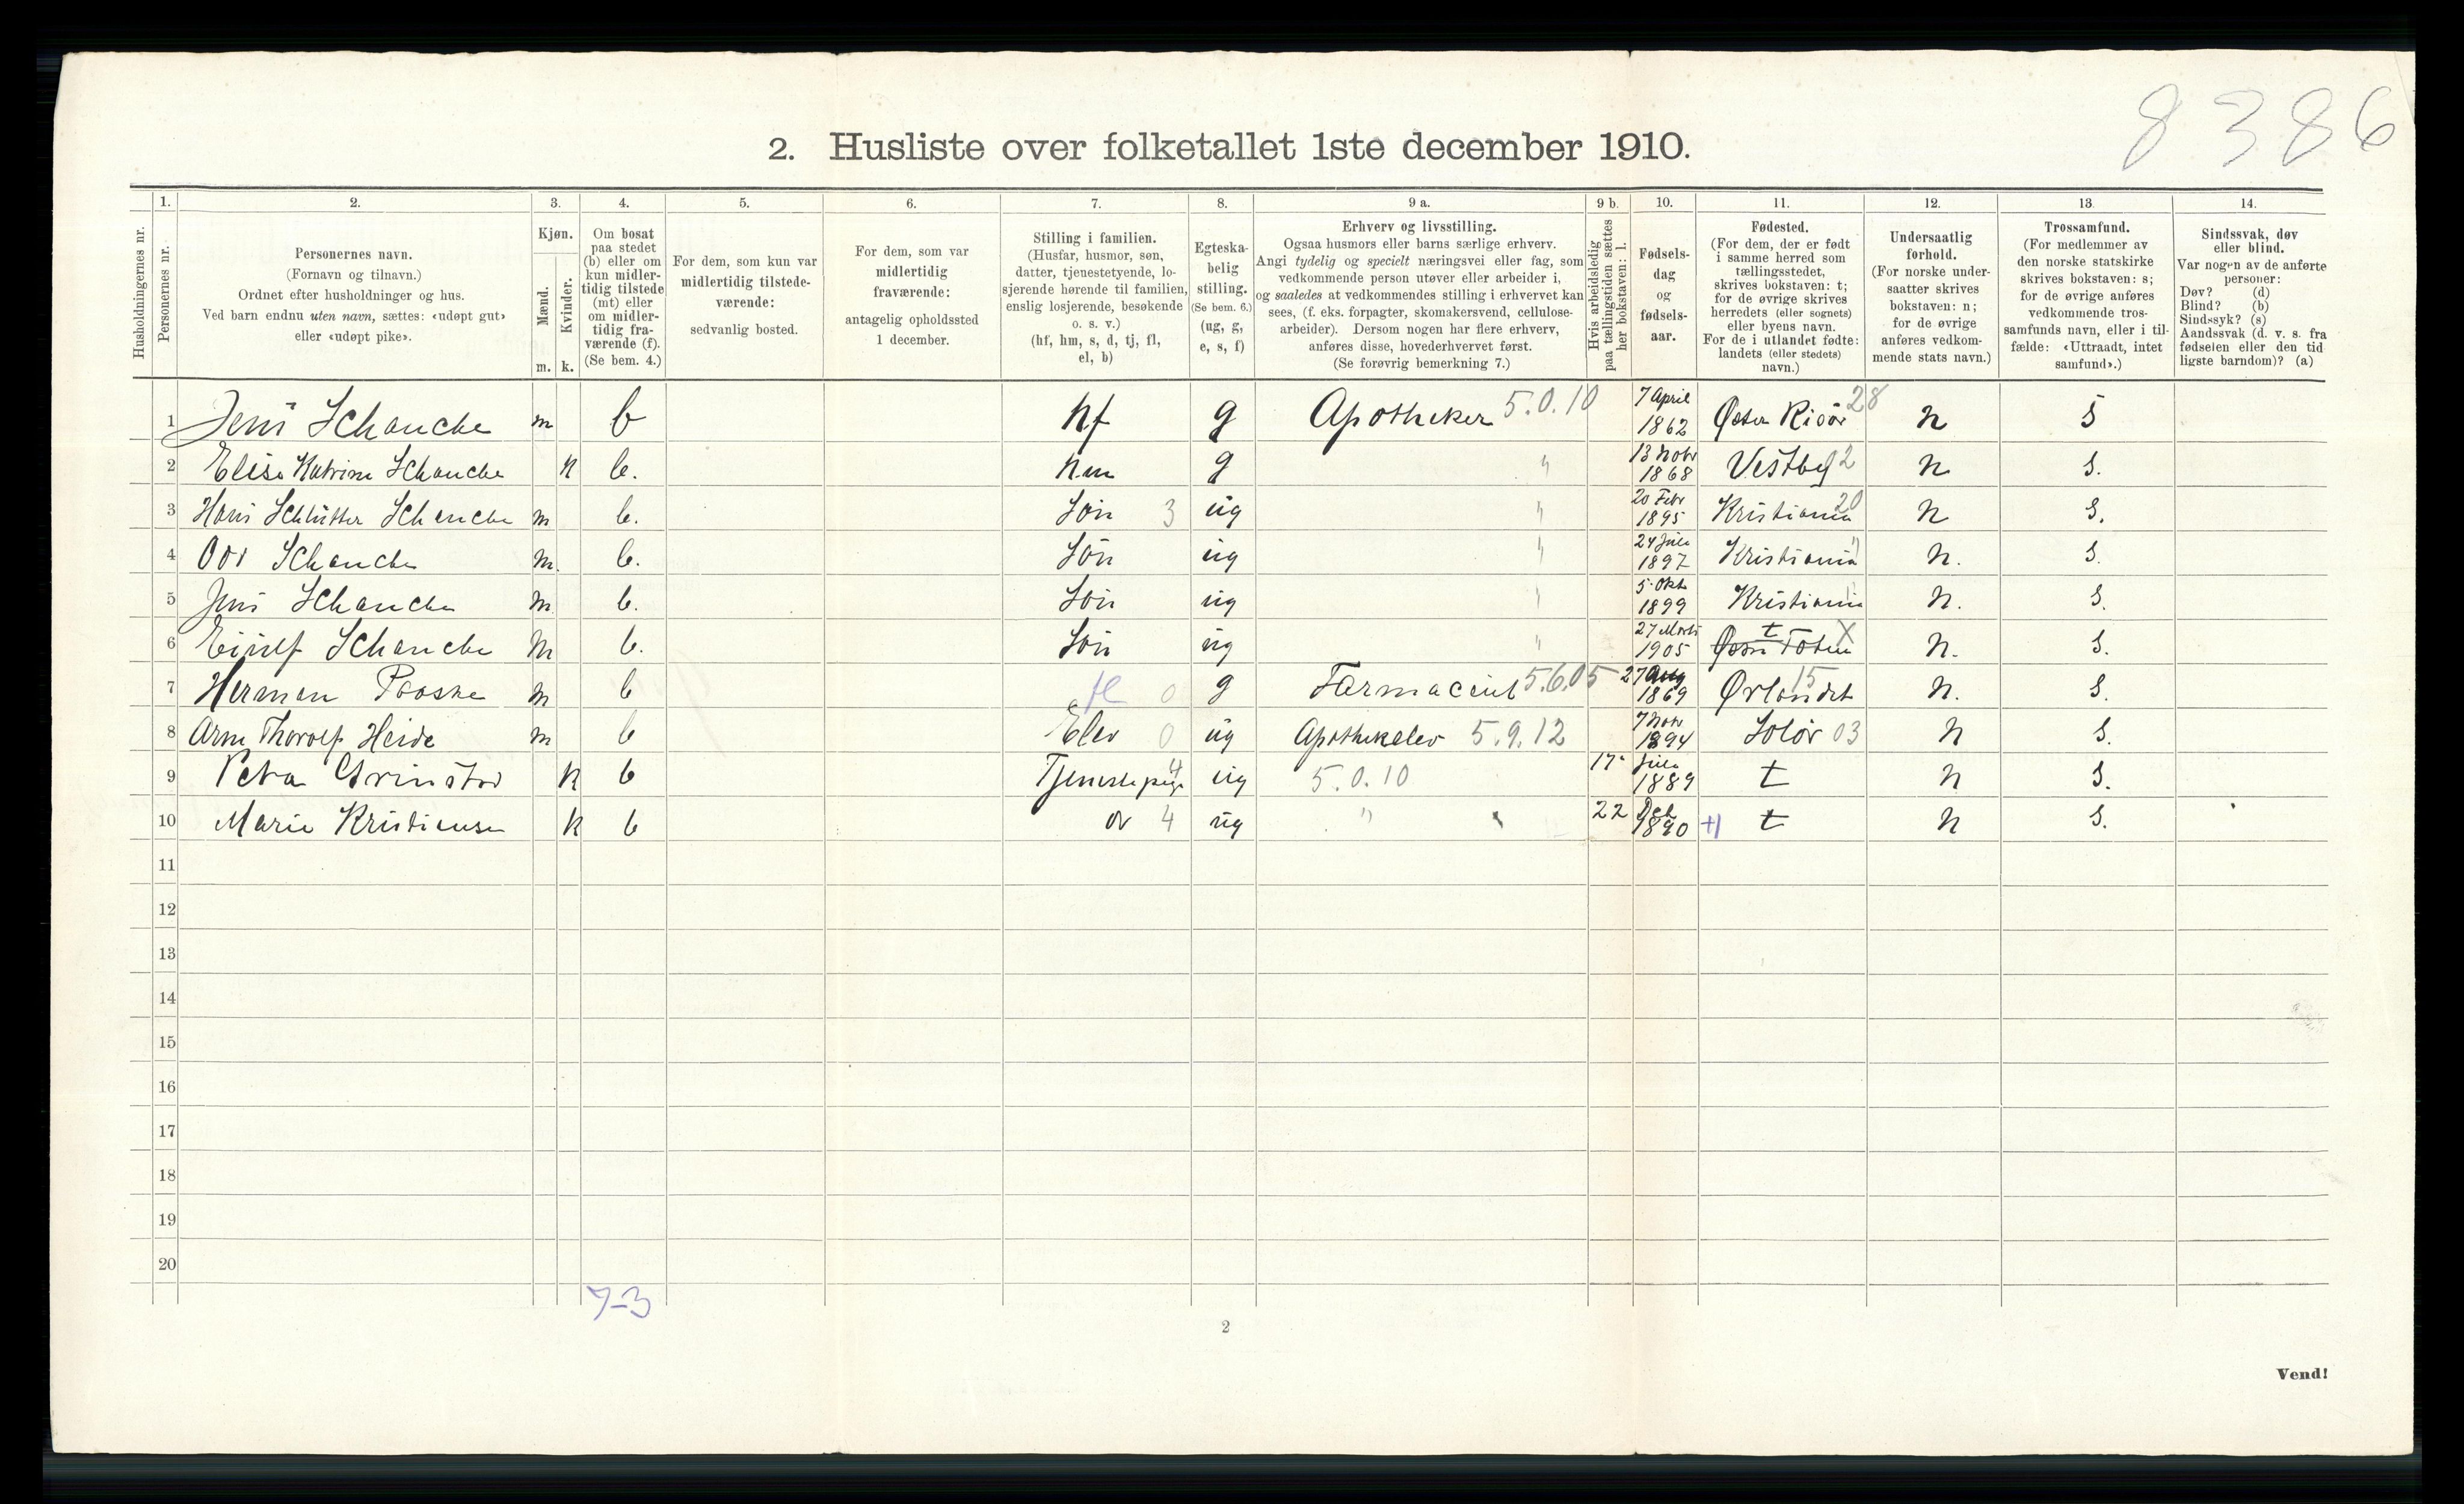 8386
2. Husliste over folketallet 1ste december 1910.
1. 2. 3. 4. 5. 6. 7. 8. 9 a. 9 b. 10. 11. 12. 13. 14.
Husholdningernes nr.
Personernes nr.
Personernes navn.
(Fornavn og tilnavn.)
Ordnet efter husholdninger og hus.
Ved barn endnu uten navn, sættes: «udøpt gut»
eller «udøpt pike».
Kjøn.
Mænd.
Kvinder.
m. k.
Om bosat
paa stedet
(b) eller om
kun midler-
tidig tilstede
(mt) eller
om midler-
tidig fra-
værende (f).
(Se bem. 4.)
For dem, som kun var
midlertidig tilstede-
værende:
sedvanlig bosted.
For dem, som var
midlertidig
fraværende:
antagelig opholdssted
1 december.
Stilling i familien.
(Husfar, husmor, søn,
datter, tjenestetyende, lo-
sjerende hørende til familien,
enslig losjerende, besøkende
o. s. v.)
(hf, hm, s, d, tj, fl,
el, b)
Egteska-
belig
stilling.
(Se bem. 6.)
(ug, g,
e, s, f)
Erhverv og livsstilling.
Ogsaa husmors eller barns særlige erhverv.
Angi tydelig og specielt næringsvei eller fag, som
vedkommende person utøver eller arbeider i,
og saaledes at vedkommendes stilling i erhvervet kan
sees, (f. eks. forpagter, skomakersvend, cellulose-
arbeider). Dersom nogen har flere erhverv,
anføres disse, hovederhvervet først.
(Se forøvrig bemerkning 7.)
Hvis arbeidsledig
paa tællingstiden sættes
her bokstaven: l.
Fødsels-
dag
og
fødsels-
aar.
Fødested.
(For dem, der er født
i samme herred som
tællingsstedet,
skrives bokstaven: t;
for de øvrige skrives
herredets (eller sognets)
eller byens navn.
For de i utlandet fødte:
landets (eller stedets)
navn.)
Undersaatlig
forhold.
(For norske under-
saatter skrives
bokstaven: n;
for de øvrige
anføres vedkom-
mende stats navn.)
Trossamfund.
(For medlemmer av
den norske statskirke
skrives bokstaven: s;
for de øvrige anføres
vedkommende tros-
samfunds navn, eller i til-
fælde: «Uttraadt, intet
samfund».)
Sindssvak, døv
eller blind.
Var nogen av de anførte
personer:
Døv? (d)
Blind? (b)
Sindssyk? (s)
Aandssvak (d. v. s. fra
fødselen eller den tid
ligste barndom)? (a)
1 Jens Schanche m b hf g Apotheker 5.0.10 7 April 1862 Øster Risør 28 n s
2 Elise Katrine Schanche k b. hm g " 13 Nobr 1868 Vestby 2 n s.
3 Hans Schlütter Schanche m b. Sön 3 ug " 20 Febr 1895 Kristiania 20 n s.
4 Schanche m. b. Sön ug " 24 1897 Kristiania " n. s.
5 Jens Schanche m b. Sön ug " 5 Okt 1899 Kristiania " n. s.
6 Schanche m b. Sön ug " 27 Marts 1905 Østre Toten t X n. s.
7 Herman Paaske m b fl 0 g Farmaceut 5.6.05 27 Aug 1869 Ørlandet 15 n. s.
8 Arne Thorolf Heide m b Elev 0 ug Apothekelev 5.9.12 7 Nobr 1894 Solør 03 n s.
9 Petra Grinstad k b Tjenestepige 4 ug 5.0.10 17 1889 t n s.
10 Marie Kristiansen k b 4 ug " 22 1890 t n s.
11
12
13
14
15
16
17
18
19
20
7-3
2
Vend!